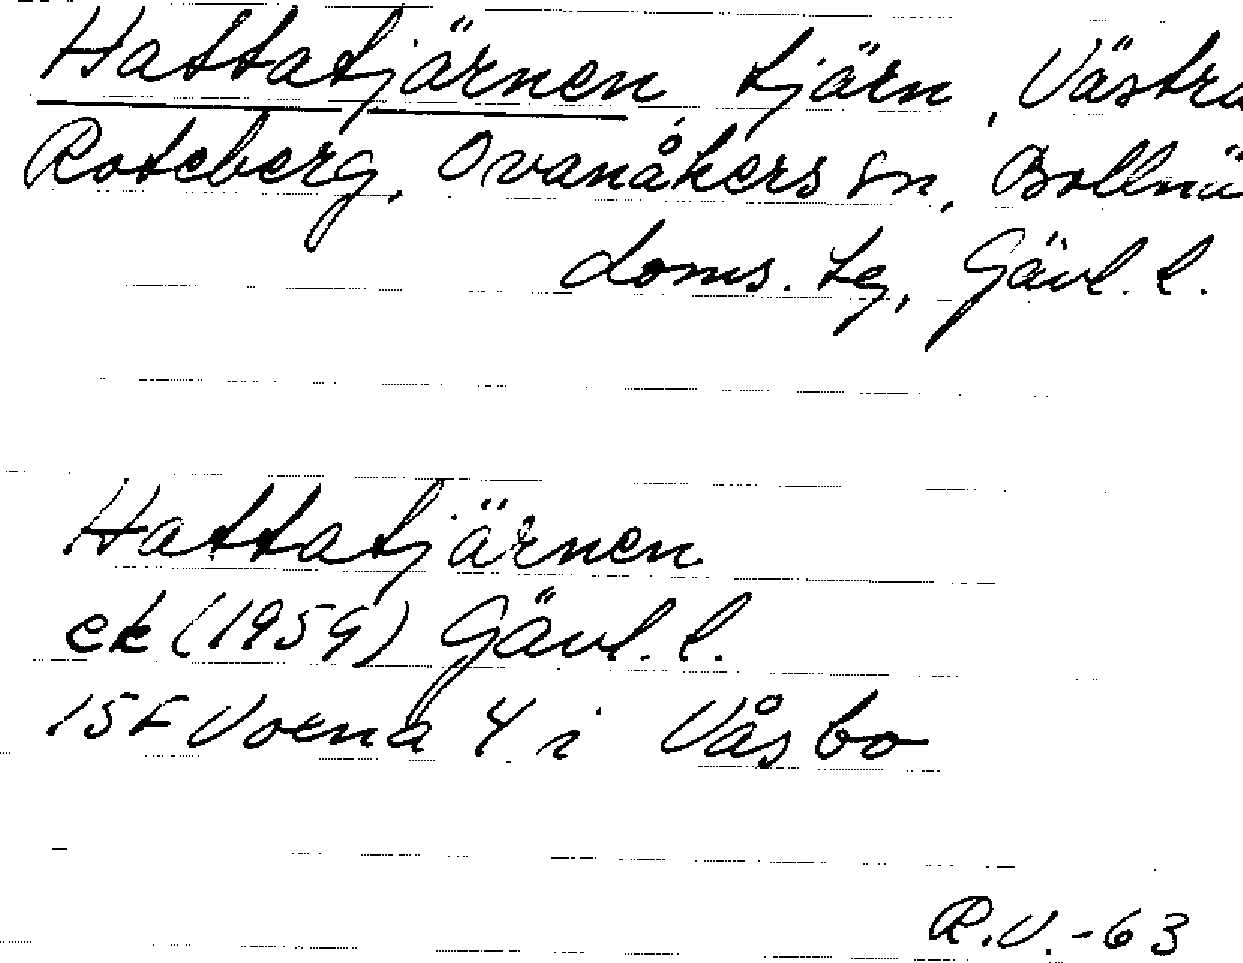 Hattatjärnen, tjärn, Västra
Roteberg, Ovanåkers sn, Bollnä
doms. tg, Gävl. l.
Hattatjärnen
ek (1959) Gävl. l.
15F Voxna 4 i Våsbo
R.V.-63